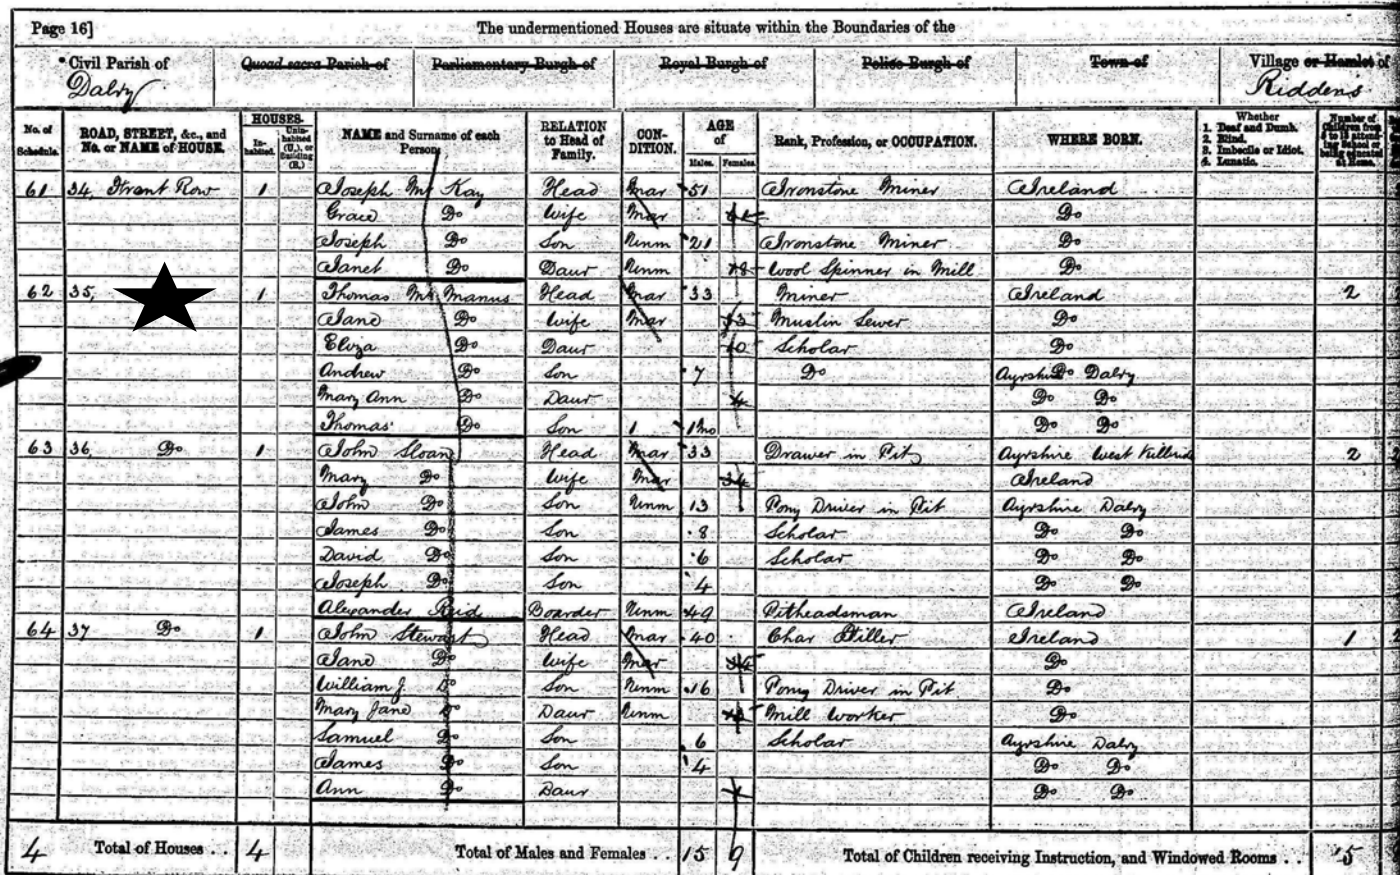 Page 16] The undermentioned Houses are situate within the Boundaries of the
Civil Parish of Quoad sacra Parish of Parliamentary Burgh of Royal Burgh of Police Burgh of Town of Village or Hamlet of
Dalry Riddens
No. of Schedule. ROAD, STREET, &c., and No. or NAME of HOUSE. HOUSES. In-habited. Unin-habited (U.), or Building (B.) NAME and Surname of each Person. RELATION to Head of Family. CON-DITION. AGE of Males. Females. Rank, Profession, or OCCUPATION. WHERE BORN. Whether 1. Deaf and Dumb. 2. Blind. 3. Imbecile or Idiot. 4. Lunatic. Number of Children from 5 to 13 attend-ing School or being educated at Home.
61 34, Row 1 Joseph Mc Kay Head Mar 51 Ironstone Miner Ireland
Grace Do Wife Mar Do
Joseph Do Son Unm 21 Ironstone Miner Do
Janet Do Daur Unm 18 Wool Spinner in Mill Do
62 35, 1 Thomas Mc Manus Head Mar 33 Miner Ireland 2
Jane Do Wife Mar Muslin Sewer Do
Eliza Do Daur 10 Scholar Do
Andrew Do Son 7 Do Ayrshire Dalry
Mary Ann Do Daur 4 Do Do
Thomas Do Son 1 1mo Do Do
63 36 Do 1 John Sloan Head Mar 33 Drawer in Pit Ayrshire West Kilbride 2
Mary Do Wife Mar 34 Ireland
John Do Son Unm 13 Pony Driver in Pit Ayrshire Dalry
James Do Son 8 Scholar Do Do
David Do Son 6 Scholar Do Do
Joseph Do Son 4 Do Do
Alexander Reid Boarder Unm 49 Pitheadsman Ireland
64 37 Do 1 John Stewart Head Mar 40 Char Filler Ireland 1
Jane Do Wife Mar Do
William J. Do Son Unm 16 Pony Driver in Pit Do
Mary Jane Do Daur Unm Mill Worker Do
Samuel Do Son 6 Scholar Ayrshire Dalry
James Do Son 4 Do Do
Ann Do Daur Do Do
4 Total of Houses . . 4 Total of Males and Females . . 15 9 Total of Children receiving Instruction, and Windowed Rooms . . 5